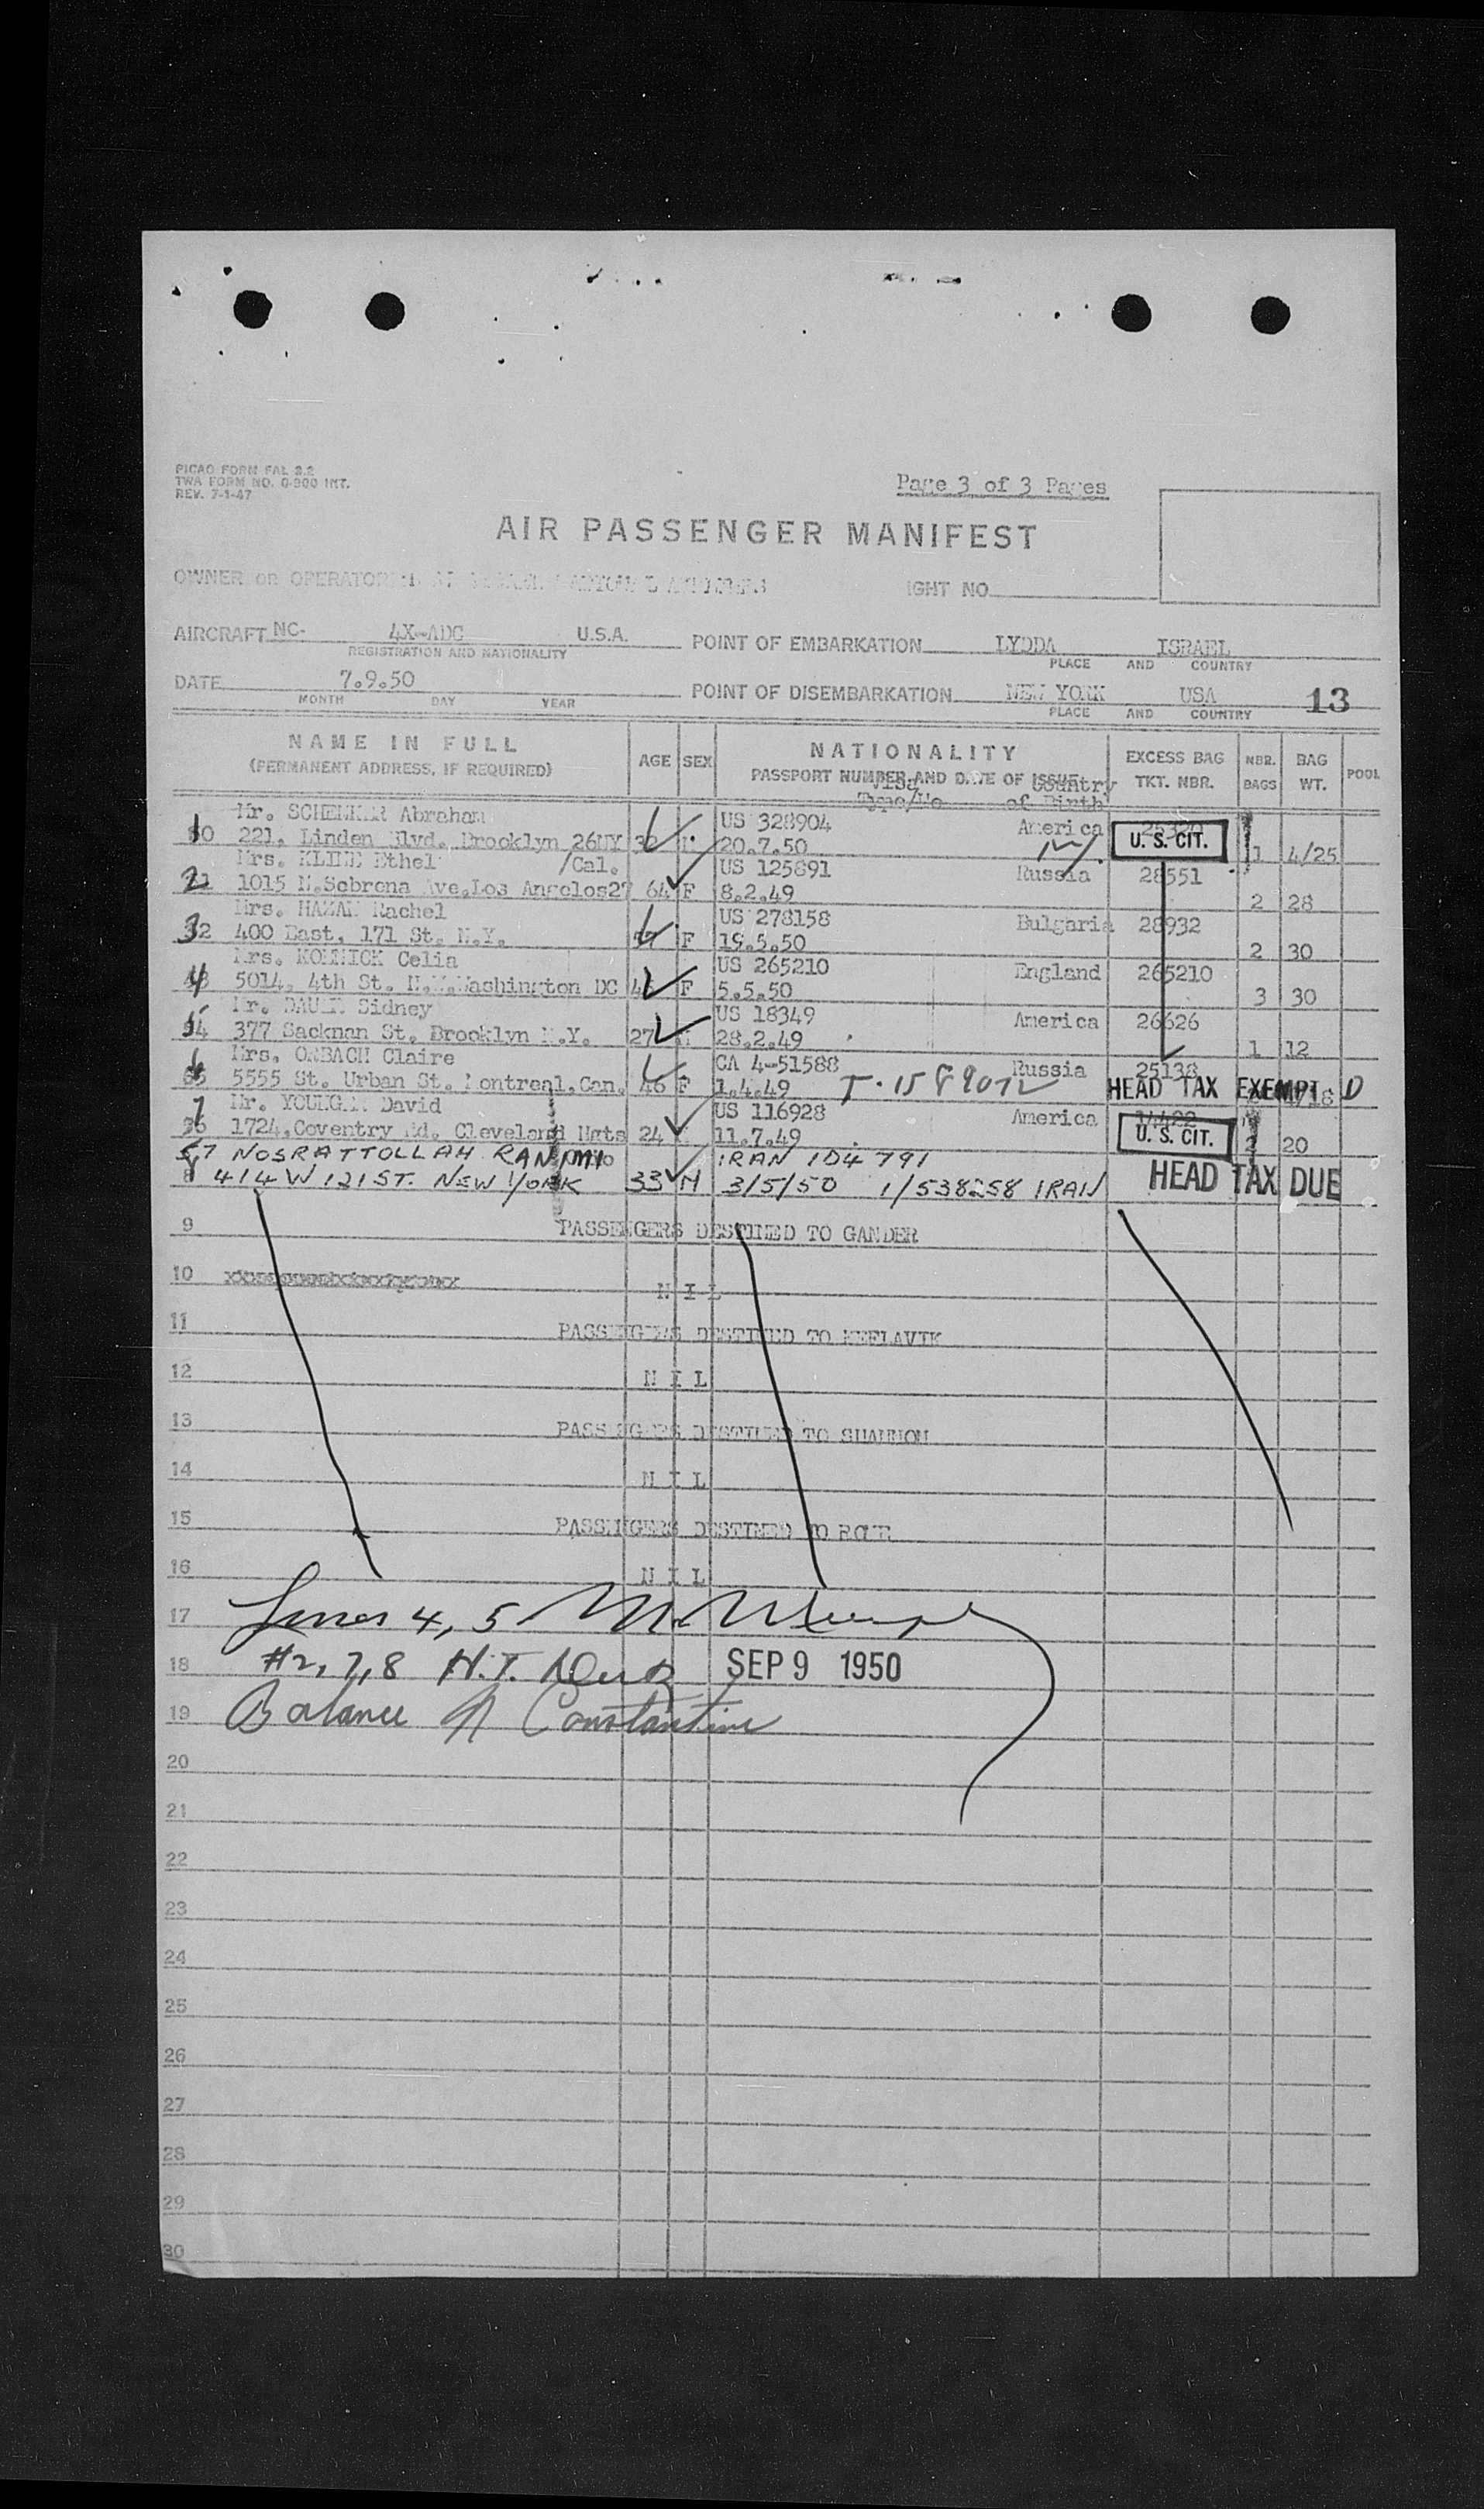 PICAO FORM FAL 2.2
TWA FORM NO. O-800 INT.
REV. 7-1-47
Page 3 of 3 Pages
AIR PASSENGER MANIFEST
OWNER or OPERATOR
IGHT NO.
AIRCRAFT NC. 4X-ADC U.S.A. POINT OF EMBARKATION LYDDA ISRAEL
REGISTRATION AND NATIONALITY PLACE AND COUNTRY
DATE 7.9.50 POINT OF DISEMBARKATION NEW YORK USA 13
MONTH DAY YEAR PLACE AND COUNTRY
NAME IN FULL AGE SEX NATIONALITY EXCESS BAG NBR. BAG POOL
(PERMANENT ADDRESS, IF REQUIRED) PASSPORT NUMBER AND DATE OF ISSUE TKT. NBR. BAGS WT.
Visa Country
Type/No of Birth
Mr. SCHENKER Abraham US 328904 America
1 221, Linden Blvd. Brooklyn 26NY 20.7.50 U. S. CIT. 1 4/25
Mrs. KLINE Ethel /Cal. US 125891 Russia 28551
2 1015 N.Sebrona Ave,Los Angelos27 64 F 8.2.49 2 28
Mrs. HAZAN Rachel US 278158 Bulgaria 28932
3 400 East, 171 St. N.Y. F 19.5.50 2 30
Mrs. Celia US 265210 England 265210
4 5014, 4th St. N.W.Washington DC F 5.5.50 3 30
Mr. Sidney US 18349 America 26626
5 377 Sackman St. Brooklyn N.Y. 27 28.2.49 1 12
Mrs. ORBACH Claire CA 4-51588 Russia 25138
6 5555 St. Urban St. Montreal,Can. 46 F 1.4.49 T-1589072 HEAD TAX EXEMPT D
Mr. David US 116928 America 14422
7 1724,Coventry Rd. Cleveland Hgts 24 11.7.49 U. S. CIT. 2 20
57 NOSRATTOLLAH IRAN 104791
8 414 W 121 ST. NEW YORK 33 M 3/5/50 1/538258 IRAN HEAD TAX DUE
9 PASSENGERS DESTINED TO GANDER
10 N I L
11 PASSENGERS DESTINED TO KEFLAVIK
12 N I L
13 PASSENGERS DESTINED TO SHANNON
14 N I L
15 PASSENGERS DESTINED TO ROME
16 N I L
17 Lines 4, 5
18 #2, 7, 8 H.T. SEP 9 1950
19 Balance Constantine
20
21
22
23
24
25
26
27
28
29
30